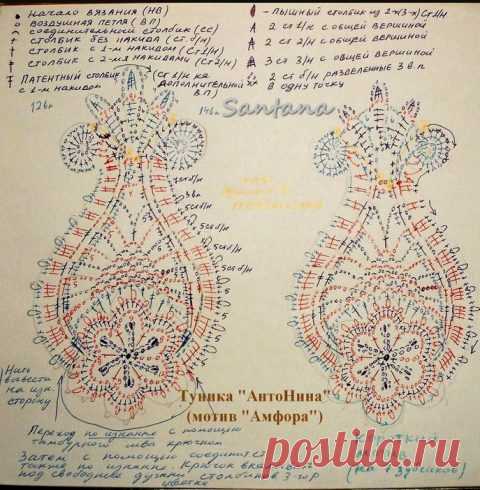 НАЧАЛО ВЯЗАНИЯ (НВ)
ВОЗДУШНАЯ ПЕТЛЯ (ВП)
СОЕДИНИТЕЛЬНОЙ СТОЛБИК (СС)
СТОЛБИК БЕЗ НАКИДА (СТ б/н)
СТОЛБИК С 1-М НАКИДОМ (СТ1/Н)
СТОЛБИК С 2-МЯ НАКИДАМИ (СТ2/Н)
ПАТЕНТНЫЙ СТОЛБИК (СТ 1/Н НА
С 1-М НАКИДОМ ДОПОЛНИТЕЛЬНОЙ ВП)
- ПЫШНЫЙ СТОЛБИК ИЗ 2-Х(3-Х) СТ1/Н
2 СТ 1/Н С ОБЩЕЙ ВЕРШИНОЙ
2 СТ 2/Н С ОБЩЕЙ ВЕРШИНОЙ
3 СТ 3/Н С ОБЩЕЙ ВЕРШИНОЙ
2 СТ б/Н РАЗДЕЛЕННЫЕ 3 В.П
В ОДНУ ТОЧКУ
Santana
3вп
5сс б/н
5сс б/н
5сс б/н
Нить
вывести
на изн.
сторону
Туника "АнтоНина"
(мотив "Амфора")
Переход по изнанке с помощью
тамбурного шва крючком
Затем с помощью соединит. ст
также по изнанке. Крючок
под свободные дужки столбиков 3-го р
цветка
postila.ru